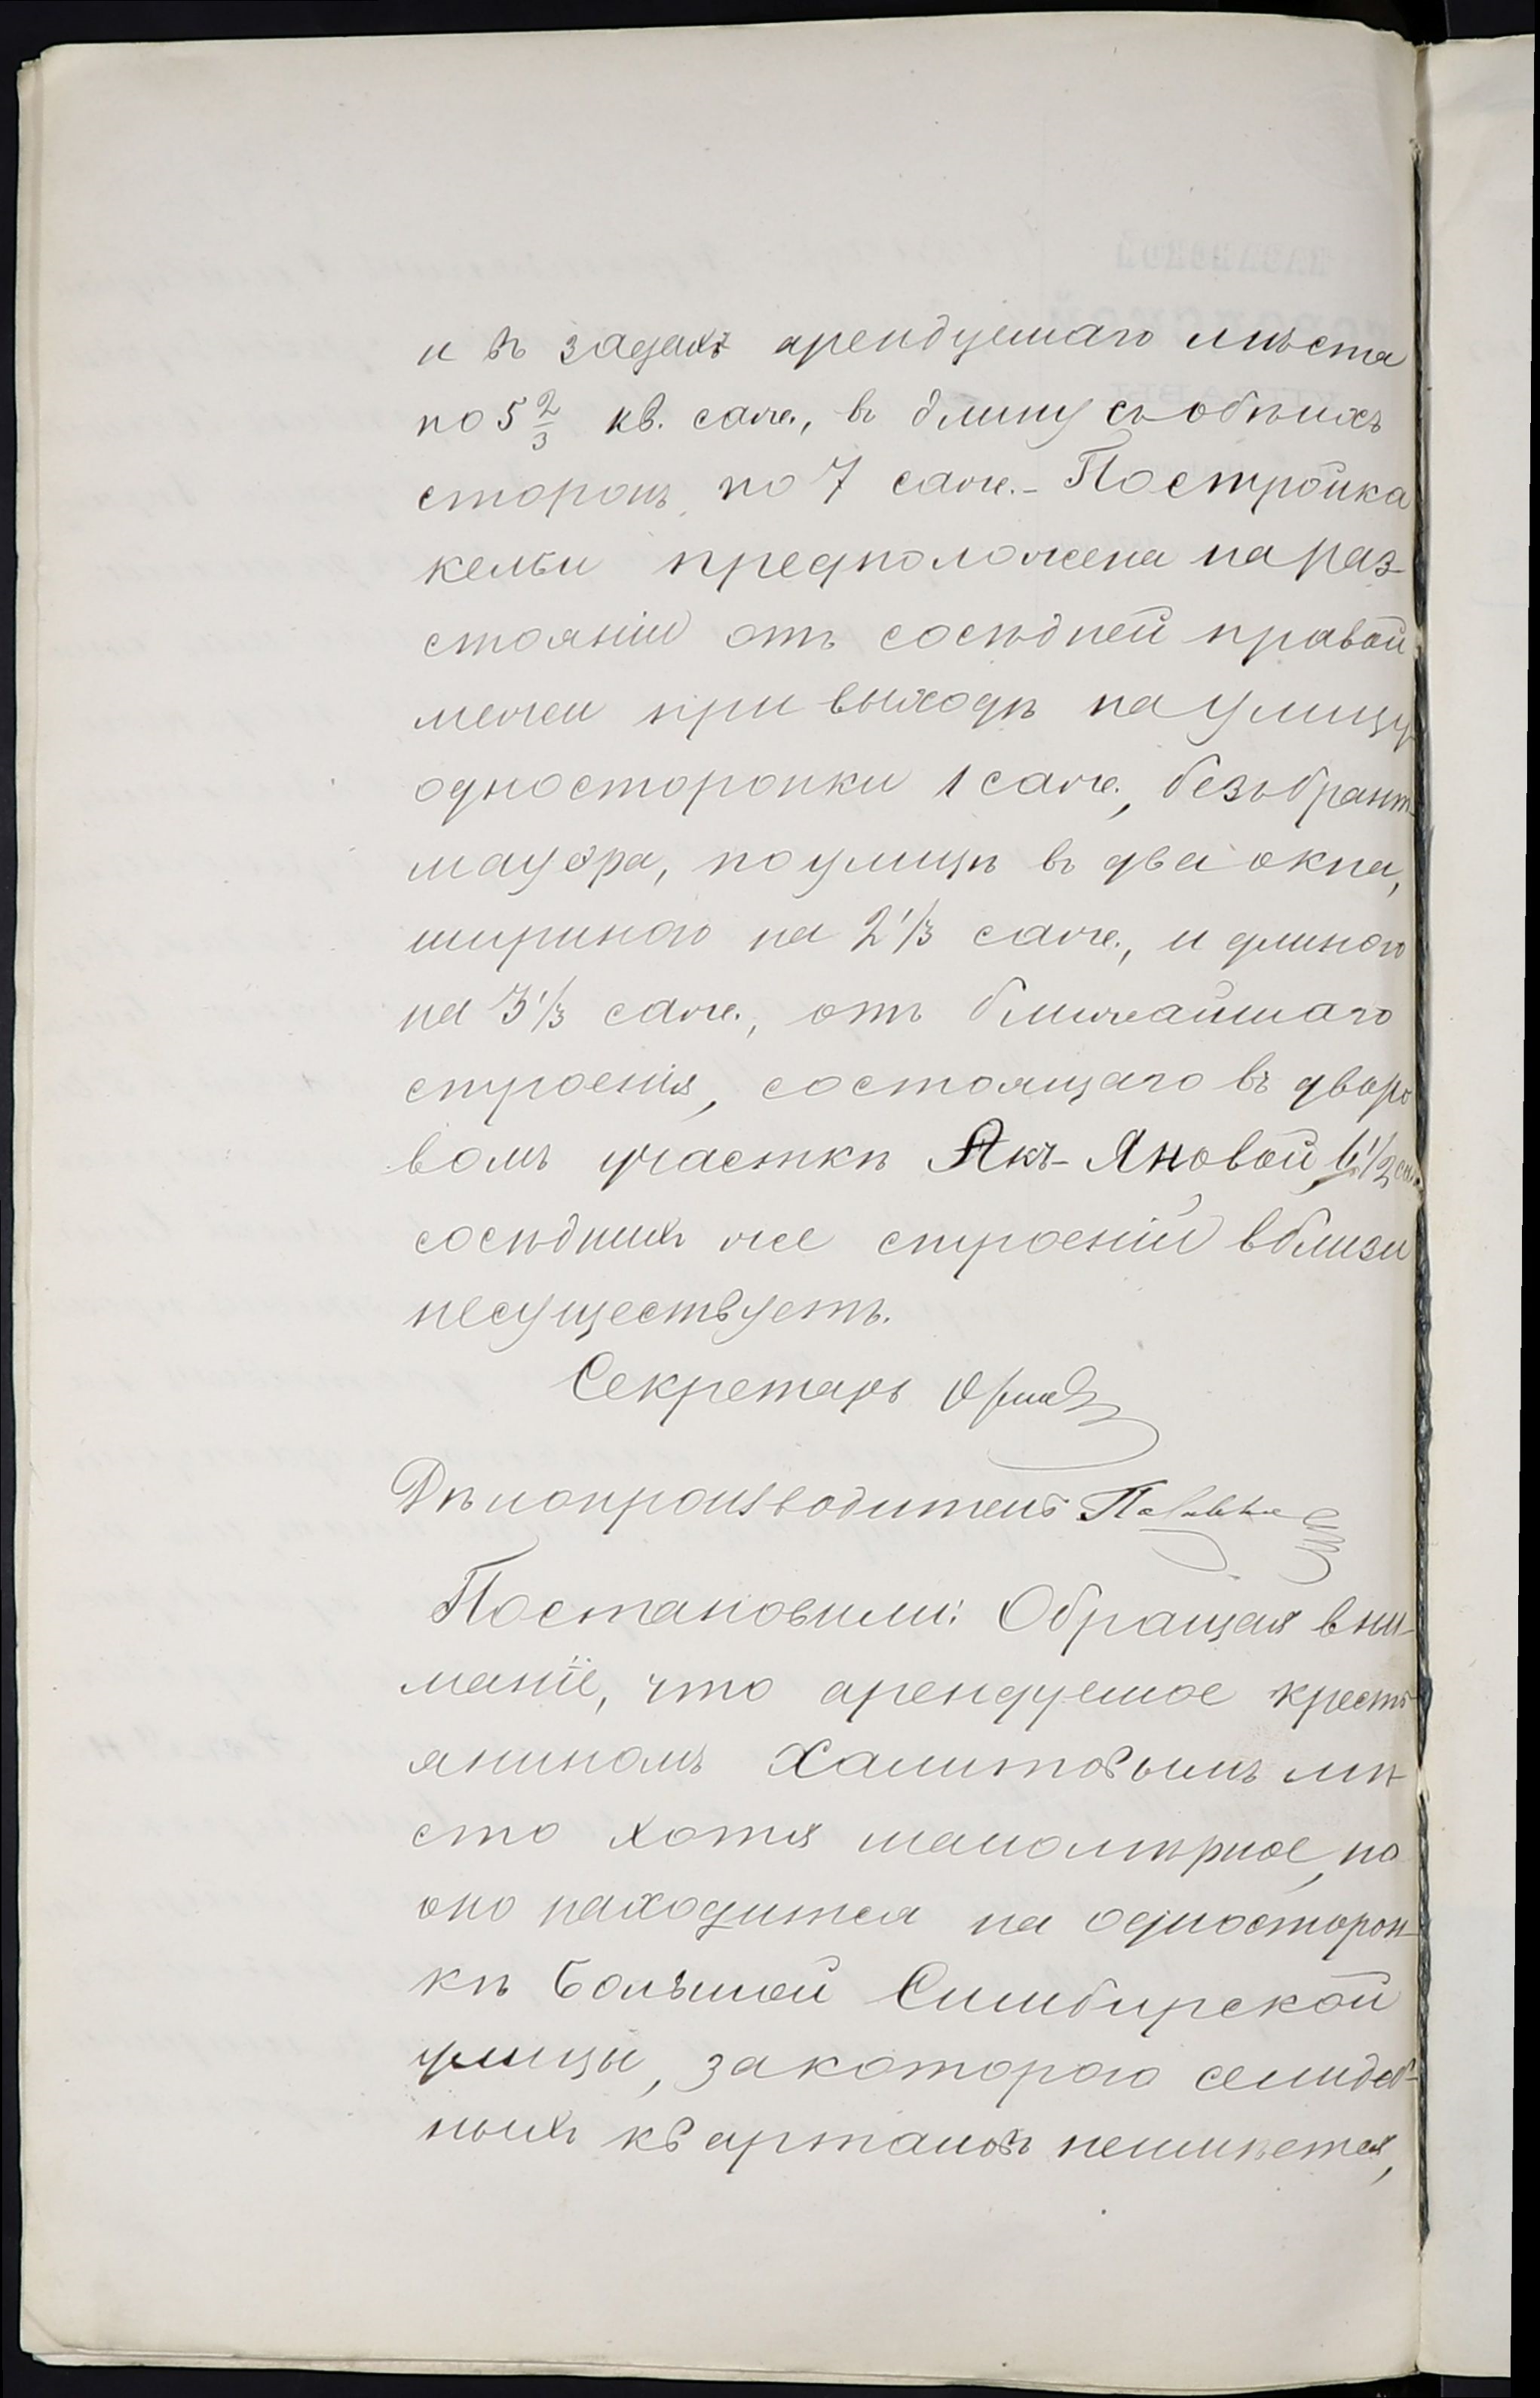 и въ задахъ арендуемаго мѣста
по 5 2/3 кв. саж., въ длину съ обѣихъ
сторонъ по 7 саж. - Постройка
кельи предположена на раз-
стояніи отъ сосѣдней правой
межи при выходѣ на улицу
односторонки 1 саж., безъ брант-
мауэра, по улицѣ въ два окна,
шириною на 2 1/3 саж., и длиною
на 3 1/3 саж., отъ ближайшаго
строенія, состоящаго въ дворо
вомъ участкѣ Якъ-Яновой, 1/2 саж
сосѣднихъ же строеній вблизи
несуществуетъ.
Секретарь
Дѣлопроизводитель
Постановили: Обращая вни-
маніе, что арендуемое кресть
яниномъ Хамитовымъ мѣ-
сто хотя маломѣрное, но
оно находится на односторон-
кѣ Большой Симбирской
улицы, за которою селидеб-
ныхъ кварталовъ неимѣется,